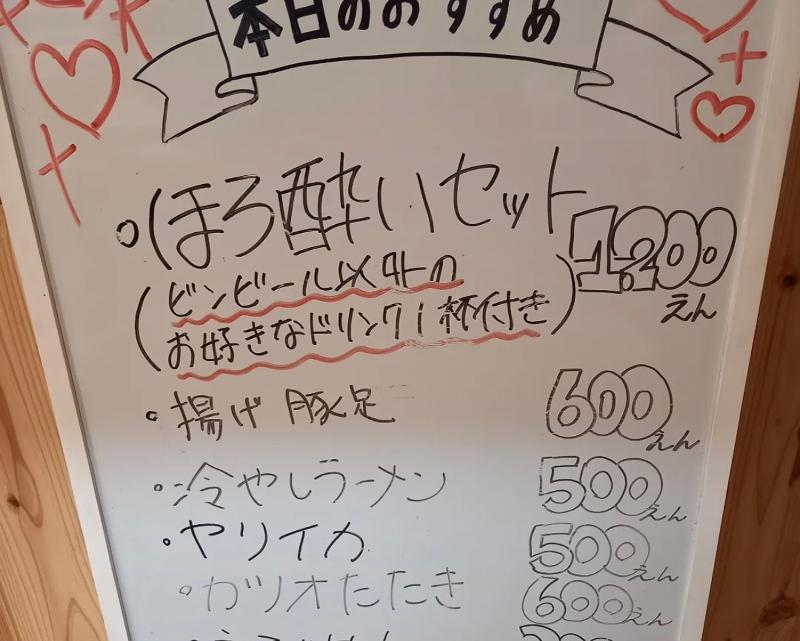 本日のおすすめ
・ほろ酔いセット 1200えん
(ビンビール以外の
お好きなドリンク1杯付き)
・揚げ豚足 600えん
・冷やしラーメン 500えん
・ヤリイカ 500えん
・カツオたたき 600えん